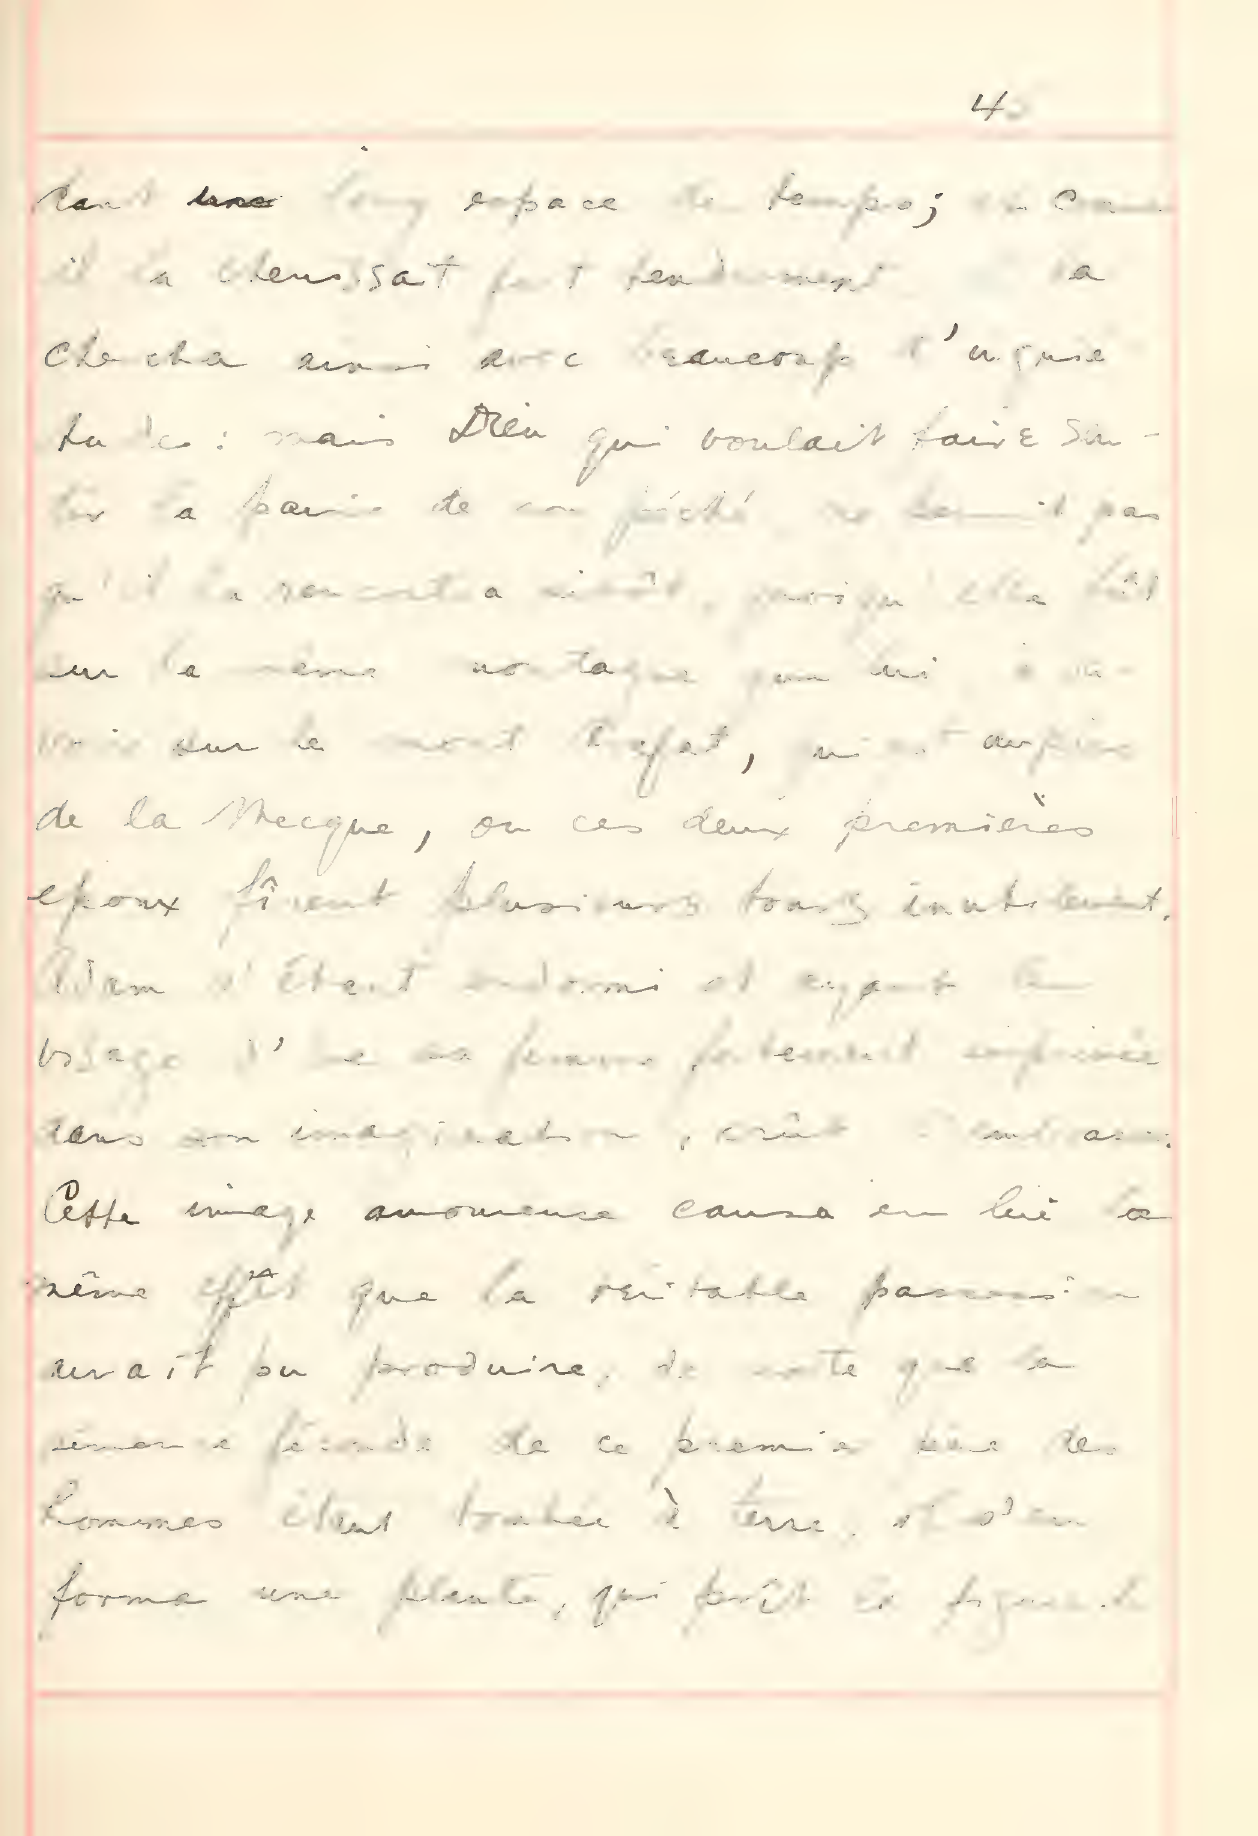 45
dant une long espace de temps; et comme
il la cherissait fort tendrement il la
chercha ainsi avec beaucoup d'inquie
tudes: mais Dieu qui voulait faire sen-
tir la paine de son péché ne permit pas
qu'il la rencontra sitôt, quoiqu'elle fût
sur la même montagne que lui à sa-
voir sur le mont Arafat, qui est auprès
de la Mecque, ou ces deux premières
epoux fîrent plusieurs tours inutilement.
Adam s'étant endormi et ayant le
visage d'Eve sa femme fortement imprimée
dans son imagination, crût l'embrasser.
Cette image amoureuse causa en lui la
même effêt que la véritable passion
aurait pu produire, de sorte que la
semence féconde de ce premier père des
hommes étant tombée à terre, il s'en
forma une plante, qui prît la figure de